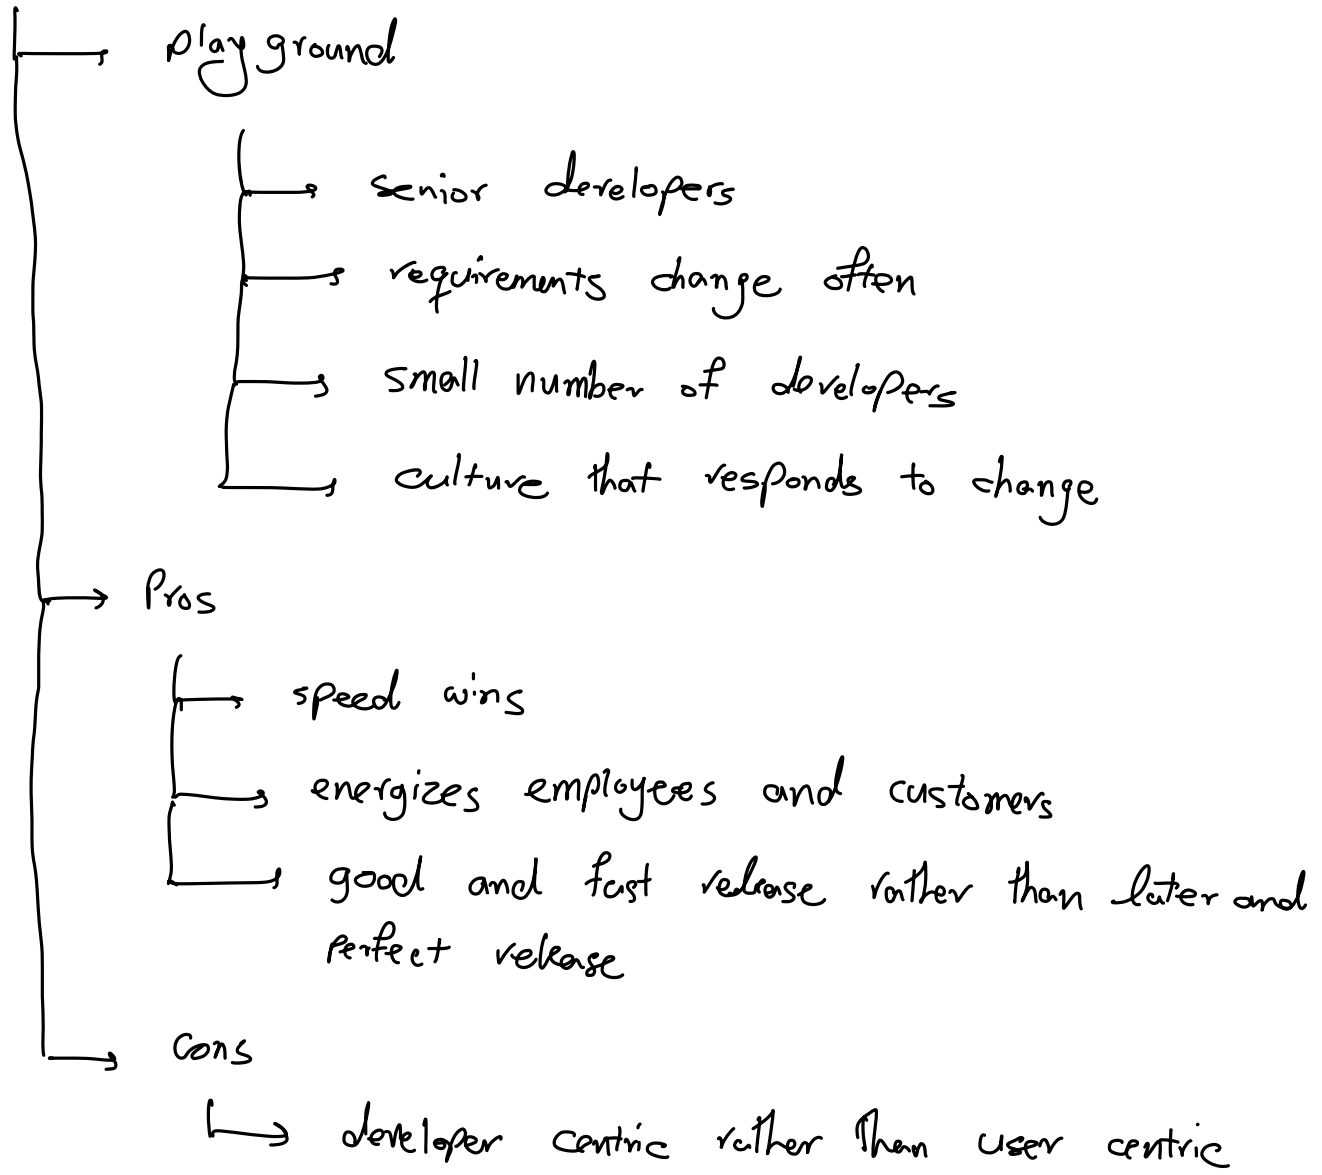 play ground
senior developers
requirements change often
small number of developers
culture that responds to change
Pros
speed wins
energizes employees and customers
good and fast release rather than later and
perfect release
Cons
developer centric rather than user centric